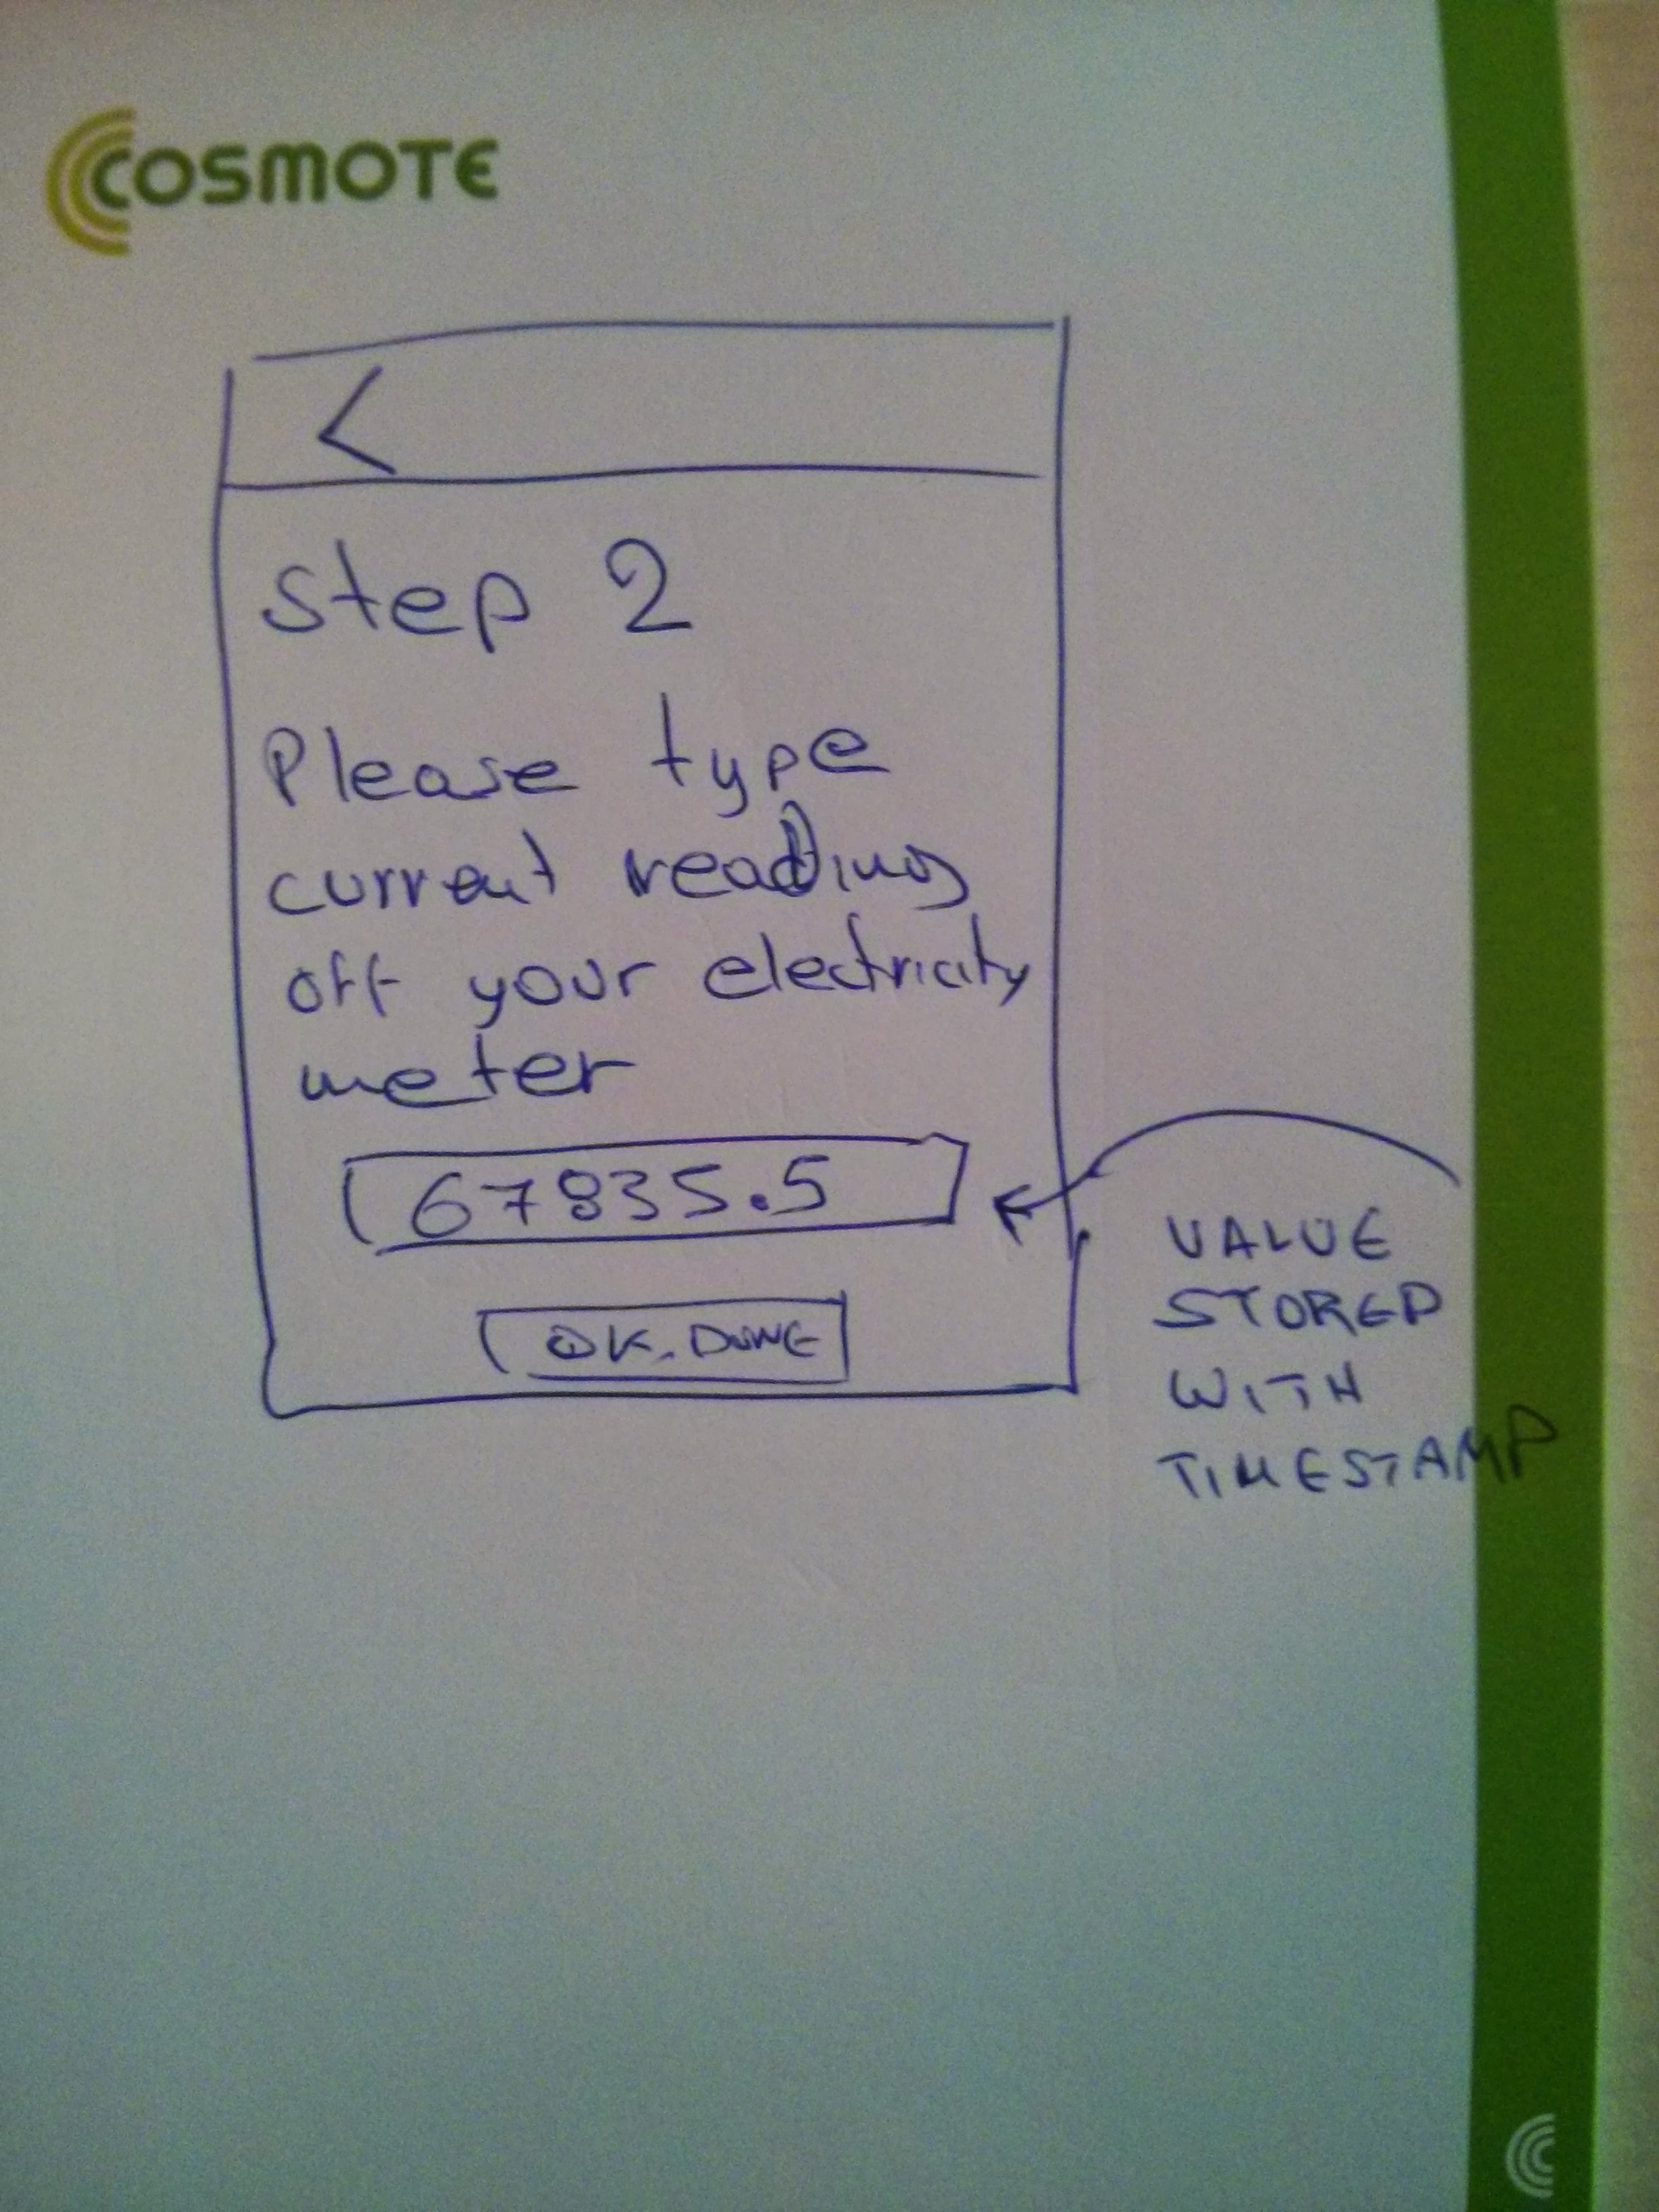 COSMOTE
<
Step 2
Please type
current reading
off your electricity
meter
67835.5
OK. DONE
VALUE
STORED
WITH
TIMESTAMP